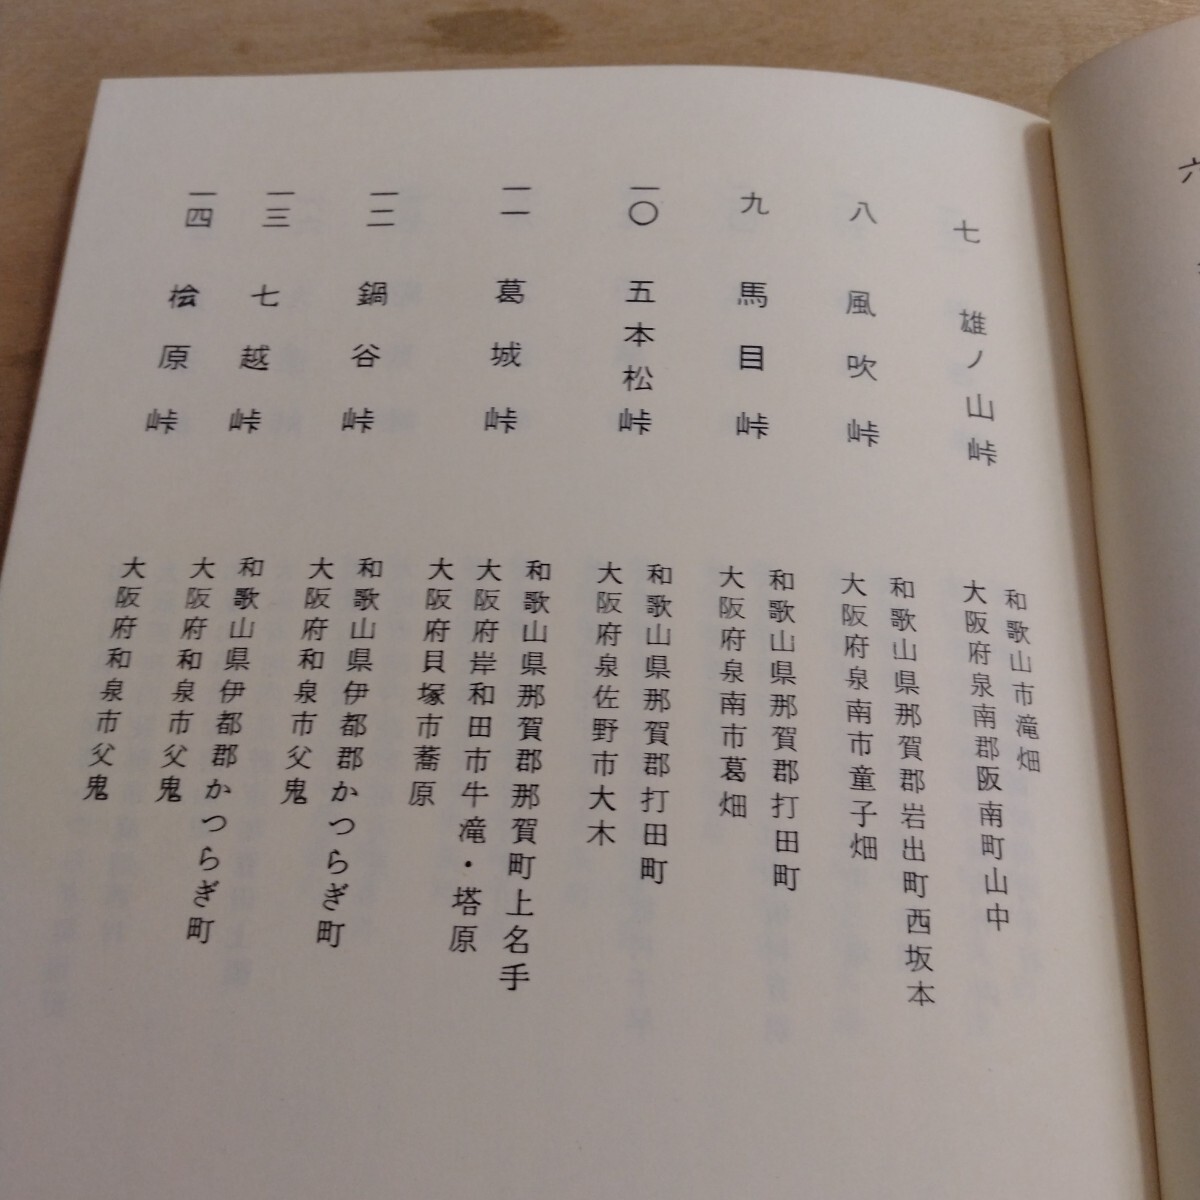 七　雄ノ山峠
和歌山市滝畑
大阪府泉南郡阪南町山中
八　風吹峠
和歌山県那賀郡岩出町西坂本
大阪府泉南市童子畑
九　馬目峠
和歌山県那賀郡打田町
大阪府泉南市葛畑
一〇　五本松峠
和歌山県那賀郡打田町
大阪府泉佐野市大木
一一　葛城峠
和歌山県那賀郡那賀町上名手
大阪府岸和田市牛滝・塔原
大阪府貝塚市蕎原
一二　鍋谷峠
和歌山県伊都郡かつらぎ町
大阪府和泉市父鬼
一三　七越峠
和歌山県伊都郡かつらぎ町
大阪府和泉市父鬼
一四　桧原峠
大阪府和泉市父鬼